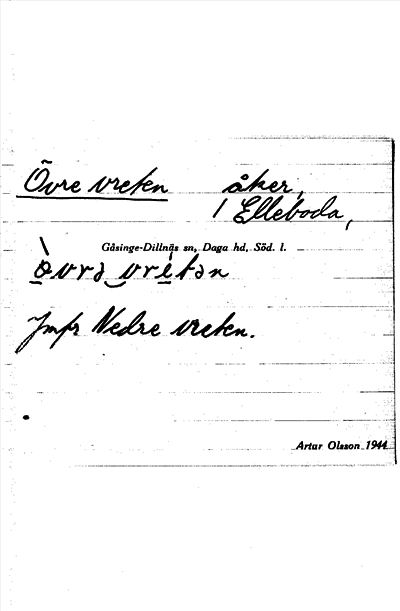 Övre vreten åker,
i Elleboda,
Gåsinge-Dillnäs sn, Daga hd, Söd. l.
Jmfr Nedre vreten.
Artur Olsson 1944